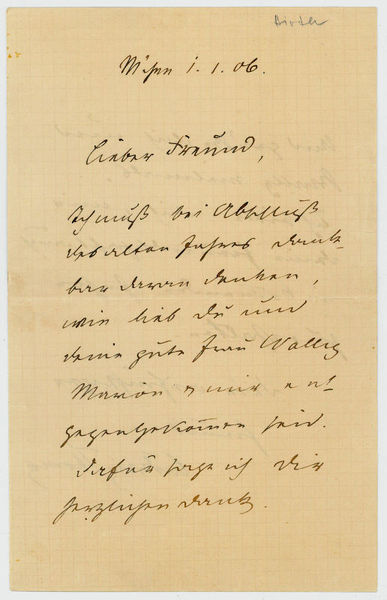 1. 1. 06.
Lieber Freund,
Ich muß bei Abschluß
des alten Jahres dank-
bar daran denken,
wie lieb du und
deine gute Frau Wally
Marion & mir ent-
gegengekommen seid.
Dafür sage ich dir
herzlichen Dank.